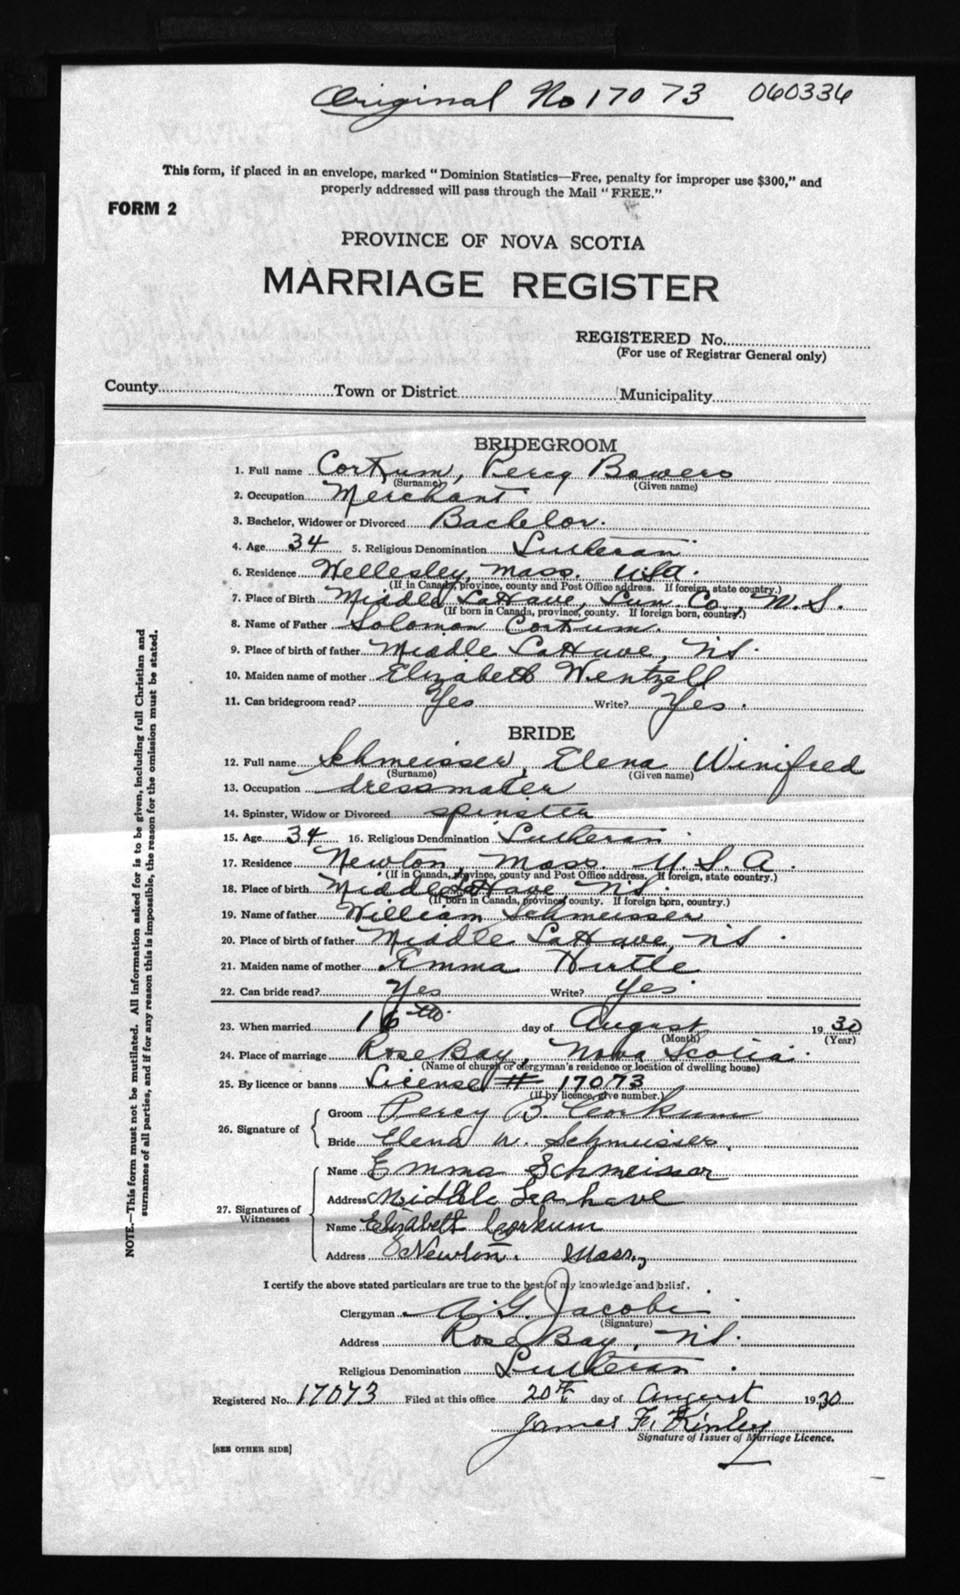 Original No 17073 060336
This form, if placed in an envelope, marked "Dominion Statistics—Free, penalty for improper use $300," and
properly addressed will pass through the Mail "FREE."
FORM 2
PROVINCE OF NOVA SCOTIA
MARRIAGE REGISTER
REGISTERED No.
(For use of Registrar General only)
County Town or District Municipality
BRIDEGROOM
1. Full name Corkum, Percy Bowers
(Surname) (Given name)
2. Occupation Merchant
3. Bachelor, Widower or Divorced Bachelor.
4. Age 34 5. Religious Denomination Lutheran
6. Residence Wellesley, Mass. USA.
(If in Canada, province, county and Post Office address. If foreign, state country.)
7. Place of Birth Middle LaHave, Lun. Co., N. S.
(If born in Canada, province, county. If foreign born, country.)
8. Name of Father Solomon Corkum.
9. Place of birth of father Middle LaHave, NS.
10. Maiden name of mother Elizabeth Wentzell
11. Can bridegroom read? Yes Write? Yes.
BRIDE
12. Full name Schmeisser, Elena Winifred
(Surname) (Given name)
13. Occupation dressmaker
14. Spinster, Widow or Divorced spinster
15. Age 34 16. Religious Denomination Lutheran
17. Residence Newton, Mass. U.S.A.
(If in Canada, province, county and Post Office address. If foreign, state country.)
18. Place of birth Middle LaHave, NS.
(If born in Canada, province, county. If foreign born, country.)
19. Name of father William Schmeisser
20. Place of birth of father Middle LaHave, NS.
21. Maiden name of mother Emma Hirtle
22. Can bride read? Yes Write? Yes.
23. When married 16th day of August 1930
(Month) (Year)
24. Place of marriage Rose Bay, Nova Scotia.
(Name of church or clergyman's residence or location of dwelling house)
25. By licence or banns License # 17073
(If by licence, give number.)
26. Signature of
Groom Percy B. Corkum
Bride Elena W. Schmeisser.
27. Signatures of Witnesses
Name Emma Schmeisser
Address Middle Lahave
Name Elizabeth Corkum
Address Newton. Mass.,
I certify the above stated particulars are true to the best of my knowledge and belief.
Clergyman A. G. Jacobi
(Signature)
Address Rose Bay, NS.
Religious Denomination Lutheran.
Registered No. 17073 Filed at this office 20th day of August 1930
James F. Kinley
Signature of Issuer of Marriage Licence.
[SEE OTHER SIDE]
NOTE.—This form must not be mutilated. All information asked for is to be given, including full Christian and
surnames of all parties, and if for any reason this is impossible, the reason for the omission must be stated.